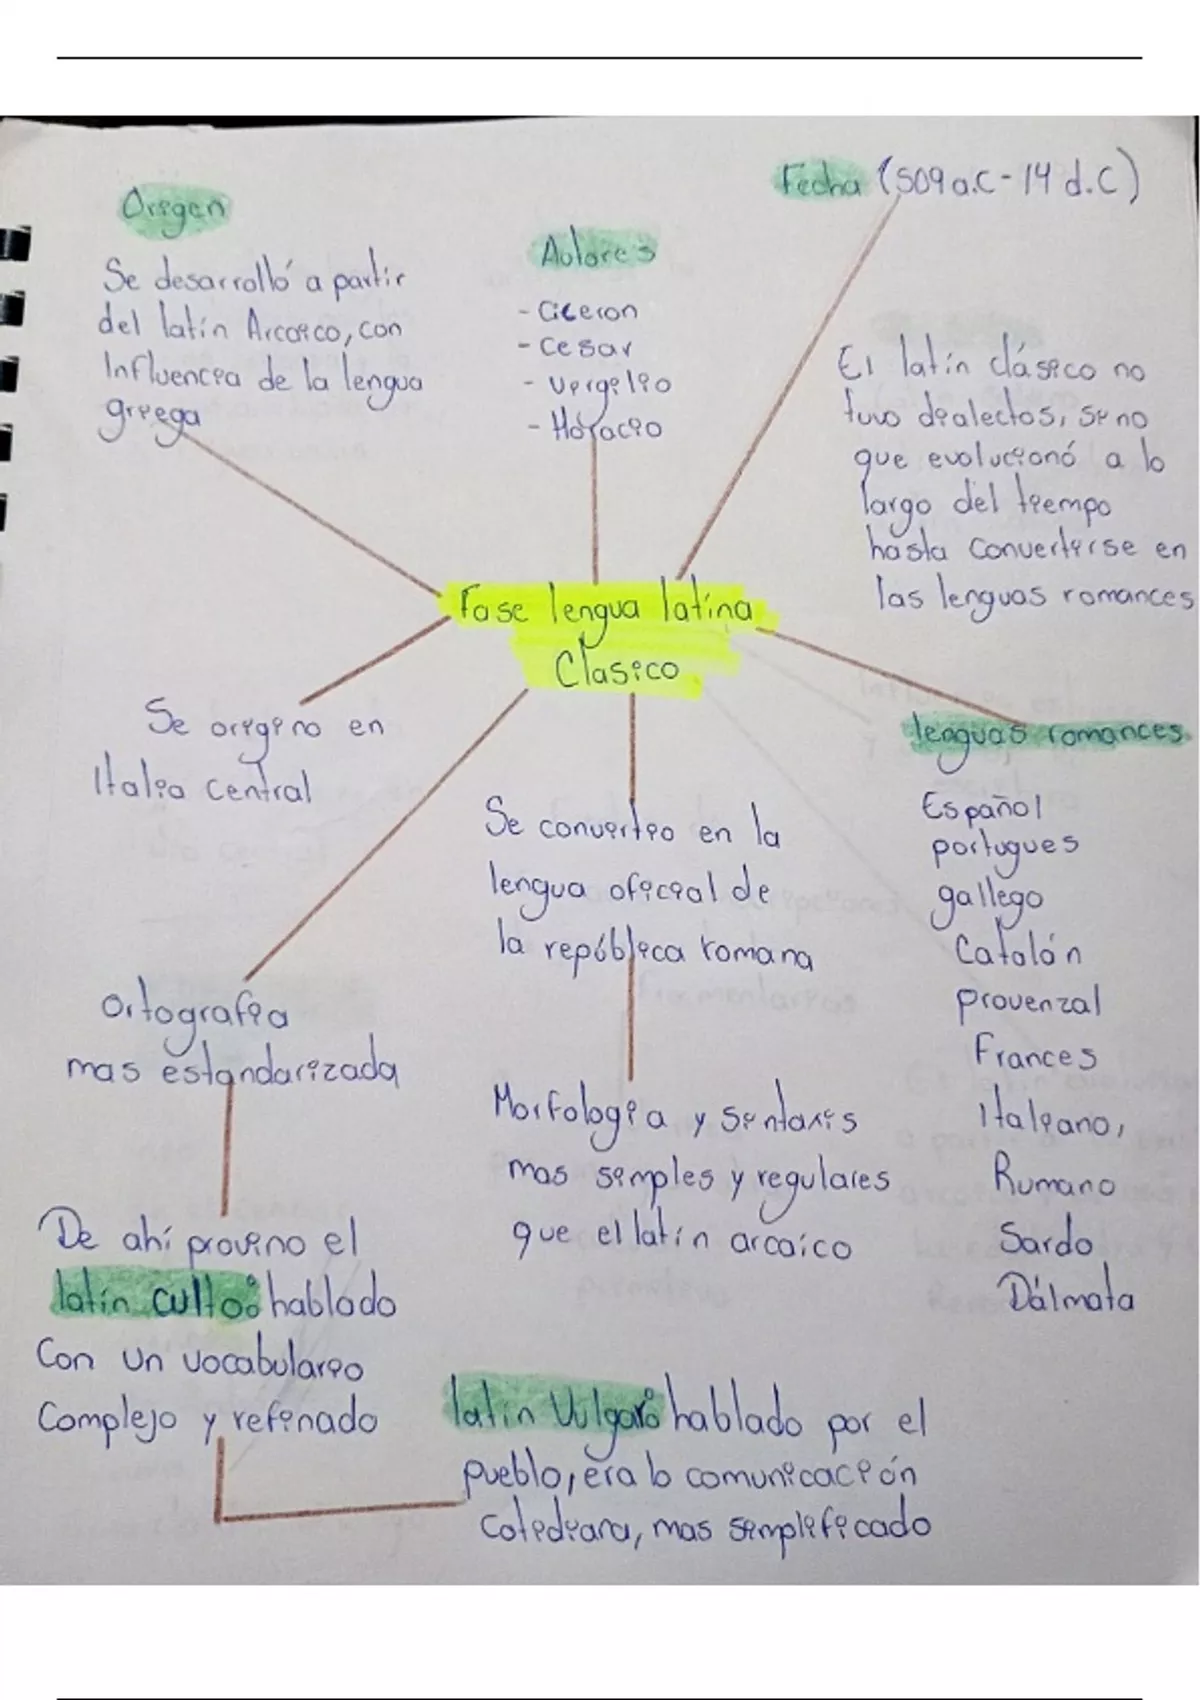 Origen
Se desarrolló a partir
del latín Arcaico, con
Influencia de la lengua
griega
Autores
- Ciceron
- Cesar
- Vergilio
- Horacio
Fecha (509 a.C - 14 d.C)
El latín clásico no
tuvo dialectos, sino
que evolucionó a lo
largo del tiempo
hasta convertirse en
las lenguas romances
Fase lengua latina
Clasico
Se origino en
Italia Central
Ortografia
mas estandarizada
De ahí provino el
latín culto: hablado
Con un vocabulario
Complejo y refinado
Se convirtio en la
lengua oficial de
la república romana
Morfologia y sintaxis
mas simples y regulares
que el latín arcaico
latin Vulgar: hablado por el
pueblo, era la comunicación
cotidiana, mas simplificado
lenguas romances
Español
portugues
gallego
Catalán
provenzal
Frances
Italiano,
Rumano
Sardo
Dálmata